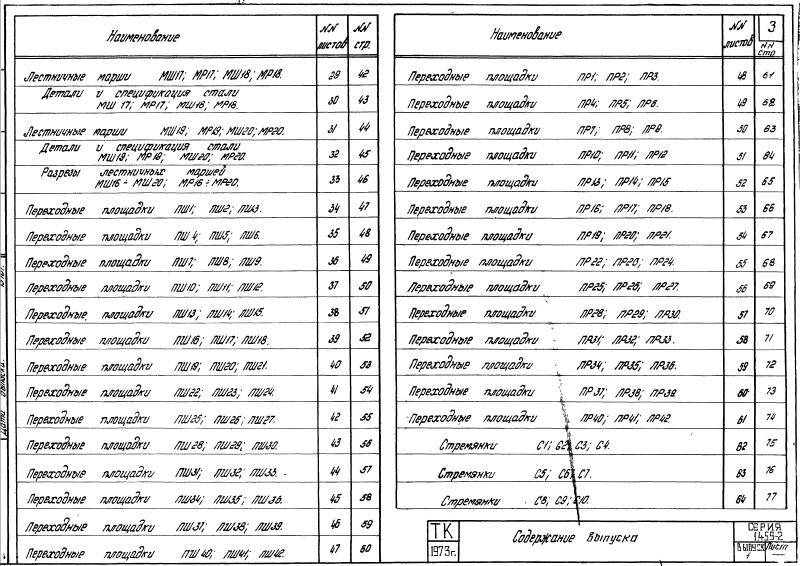 Наименование NN листов NN стр.
Лестничные марши МШ17; МР17; МШ18; МР18. 29 42
Детали и спецификация стали
МШ 17; МР17; МШ18; МР18. 30 43
Лестничные марши МШ19; МР19; МШ20; МР20. 31 44
Детали и спецификация стали
МШ19; МР19; МШ20; МР20. 32 45
Разрезы лестничных маршей
МШ16 ÷ МШ20; МР16 ÷ МР20. 33 46
Переходные площадки ПШ1; ПШ2; ПШ3. 34 47
Переходные площадки ПШ 4; ПШ5; ПШ6. 35 48
Переходные площадки ПШ7; ПШ8; ПШ9. 36 49
Переходные площадки ПШ10; ПШ11; ПШ12. 37 50
Переходные площадки ПШ13; ПШ14; ПШ15. 38 51
Переходные площадки ПШ16; ПШ17; ПШ18. 39 52
Переходные площадки ПШ19; ПШ20; ПШ21. 40 53
Переходные площадки ПШ22; ПШ23; ПШ24. 41 54
Переходные площадки ПШ25; ПШ26; ПШ27. 42 55
Переходные площадки ПШ28; ПШ29; ПШ30. 43 56
Переходные площадки ПШ31; ПШ32; ПШ33. 44 57
Переходные площадки ПШ34; ПШ35; ПШ36. 45 58
Переходные площадки ПШ37; ПШ38; ПШ39. 46 59
Переходные площадки ПШ 40; ПШ41; ПШ42. 47 60
Наименование NN листов 3 NN стр
Переходные площадки ПР1; ПР2; ПР3. 48 61
Переходные площадки ПР4; ПР5; ПР6. 49 62
Переходные площадки ПР7; ПР8; ПР9. 50 63
Переходные площадки ПР10; ПР11; ПР12 51 64
Переходные площадки ПР13; ПР14; ПР15 52 65
Переходные площадки ПР16; ПР17; ПР18. 53 66
Переходные площадки ПР19; ПР20; ПР21. 54 67
Переходные площадки ПР22; ПР23; ПР24. 55 68
Переходные площадки ПР25; ПР26; ПР27. 56 69
Переходные площадки ПР28; ПР29; ПР30. 57 70
Переходные площадки ПР31; ПР32; ПР33. 58 71
Переходные площадки ПР34; ПР35; ПР36. 59 72
Переходные площадки ПР37; ПР38; ПР39. 60 73
Переходные площадки ПР40; ПР41; ПР42. 61 74
Стремянки С1; С2; С3; С4. 62 75
Стремянки С5; С6; С7. 63 76
Стремянки С8; С9; С10. 64 77
ТК
1973г.
Содержание выпуска
СЕРИЯ
1.459-2
Выпуск 1
Лист —
Дата выпуска: